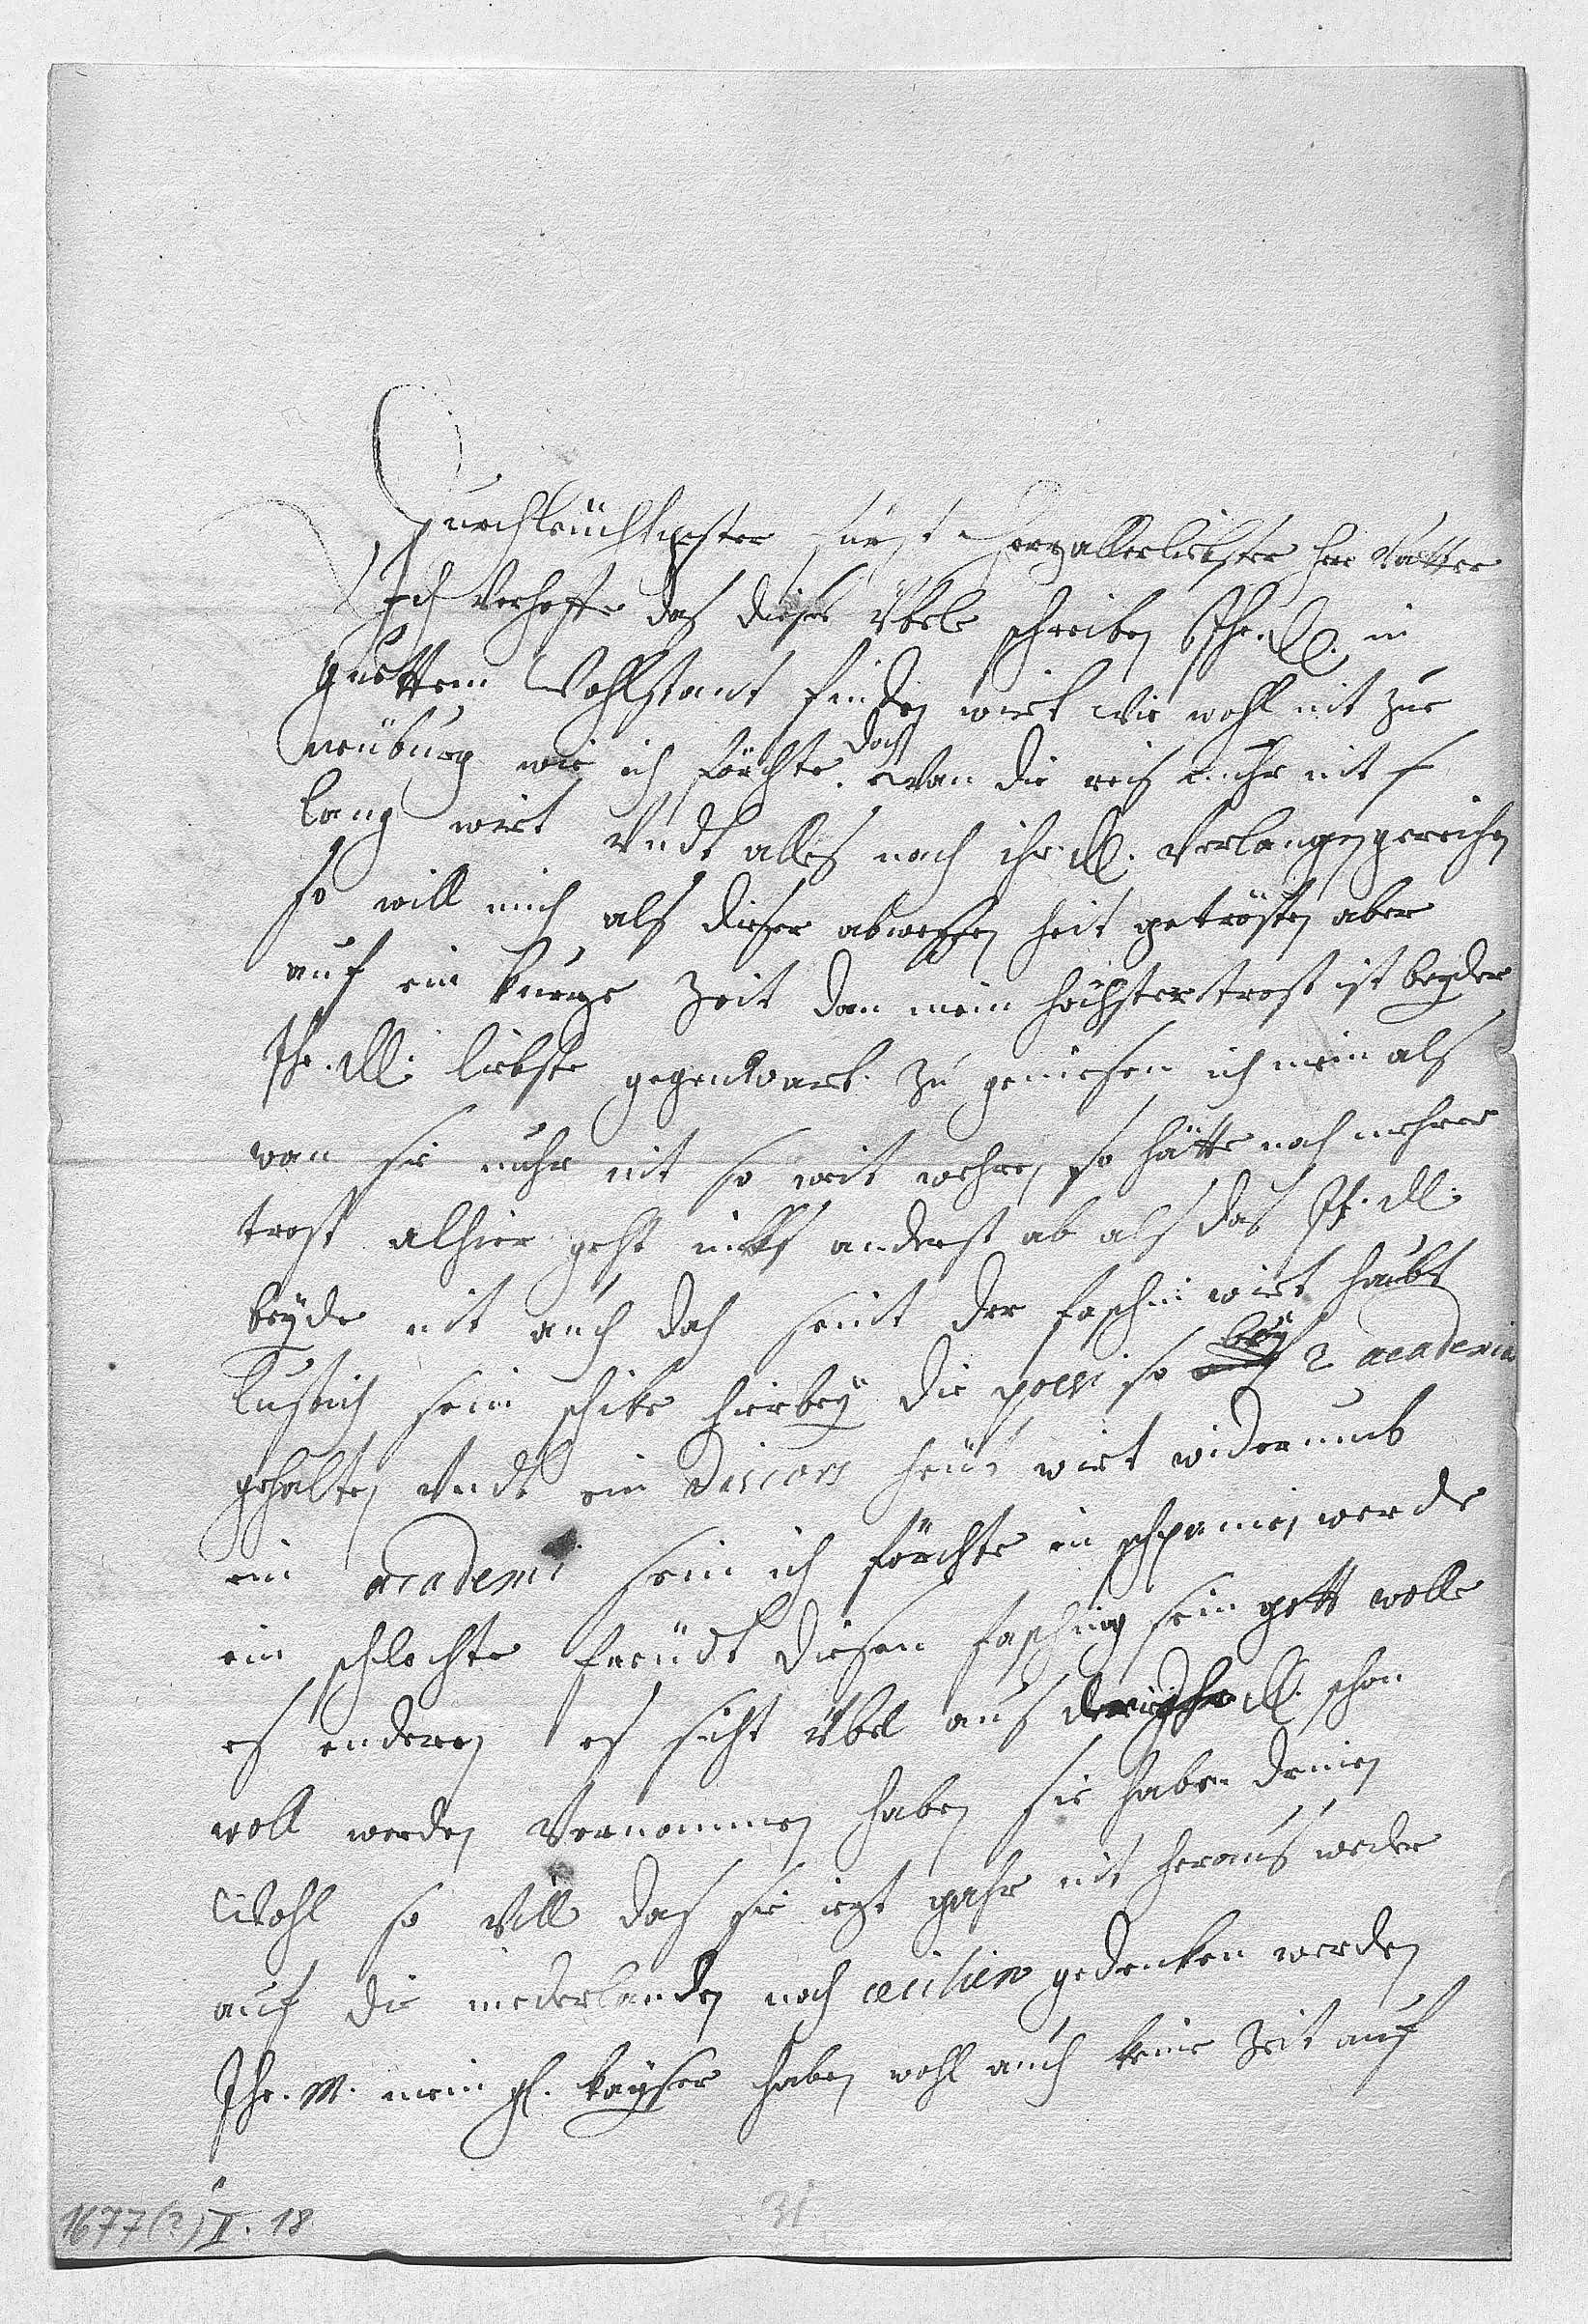 Durchleüchtigster Fürst Herzallerliebster her Vatter
Ich verhoffe das dieses Übele schreiben Ihr. Dl. in
guettem Wohlstant finden wirt wie wohl nit zue
neüburg wie ich förchte. doch wan die reis nuhr nit
lang wirt Undt alles nach ihr. Dl. Verlangen gereichen
so will mich als dieser abweßenheit getrösten aber
auf ein kurze Zeit dan mein höchster trost ist beyder
Ihr. Dl. liebste gegenwart zu geniesen ich mein als
wan sie nuhr nit so weit wehren so hätte noch mehrer
trost alhier geht nichts anderst ab als das Ih. Dl.
beyde nit auch da seint der faschin wirt haubt
Lustich sein schike hierbey die poesi so bey 2 academien
gehalten Undt ein discors heüt wirt widerumb
ein academi sein ich förchte in schpanien werde
ein schlechte freüdt diesen fasching sein gott wolle
es enderen es sicht übel aus Dl. schon
woll werden Vernommen haben sie haben drinen
Wohl so Vill das sie iezt gahr nit heraus weder
auf die niederlanden noch cicilien gedenken werden
Ihr. M. mein gl. kayser haben wohl auch keine Zeit auf
1677(?) II. 18
31